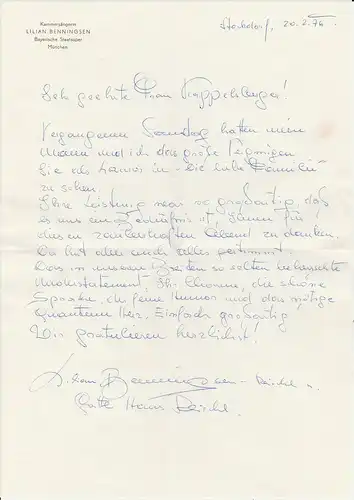 Kammersängerin
LILIAN BENNINGSEN
Bayerische Staatsoper
München
Stockdorf, 20.2.74
Sehr geehrte Frau
Vergangenen Sonntag hatten mein
Mann und ich das große Vergnügen
Sie als in "Die liebe Familie"
zu sehen!
Ihre Leistung war so großartig, daß
es uns ein Bedürfnis ist, Ihnen für
diesen zauberhaften Abend zu danken.
Da hat aber auch alles gestimmt.
Das in unseren Zeiten so selten beherrschte
Understatement, Ihr Charme, die schöne
Sprache, der feine Humor und das nötige
Quantum Herz. Einfach großartig!
Wir gratulieren herzlichst!
Lilian Benningsen-
Gatte Hans